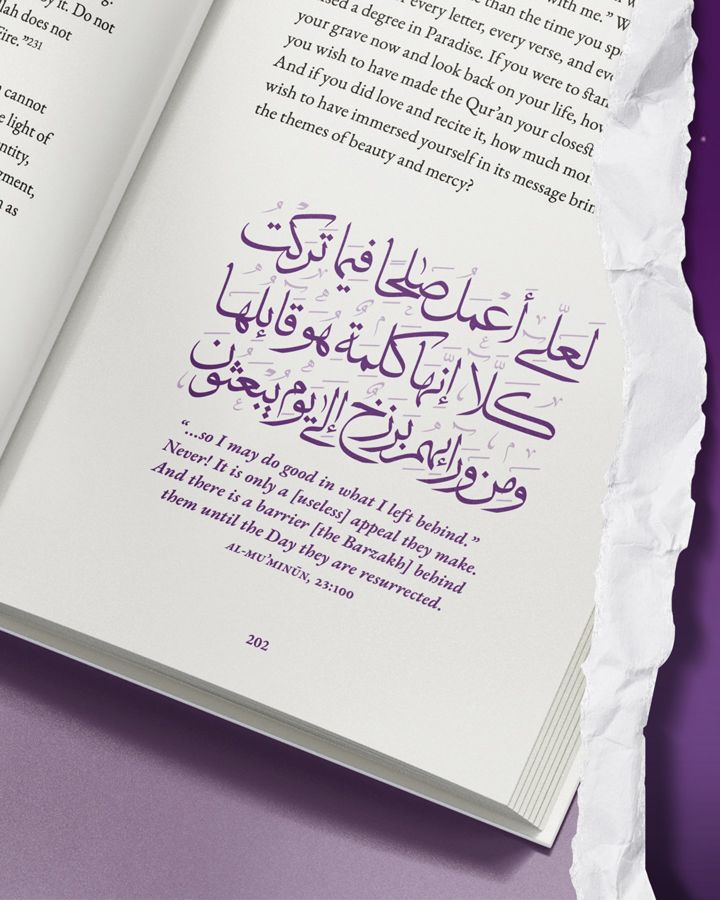 by it. Do not
does not
Fire.”231
cannot
light of
as
with me.”
than the time you
every letter, every verse, and
a degree in Paradise. If you were to
your grave now and look back on your life,
you wish to have made the Qur’an your
And if you did love and recite it, how much
wish to have immersed yourself in its message
the themes of beauty and mercy?
لَعَلِّي أَعْمَلُ صَٰلِحًا فِيمَا تَرَكْتُ
كَلَّا إِنَّهَا كَلِمَةٌ هُوَ قَائِلُهَا
وَمِن وَرَائِهِم بَرْزَخٌ إِلَى يَوْمِ يُبْعَثُونَ
“...so I may do good in what I left behind.”
Never! It is only a [useless] appeal they make.
And there is a barrier [the Barzakh] behind
them until the Day they are resurrected.
AL-MU’MINŪN, 23:100
202